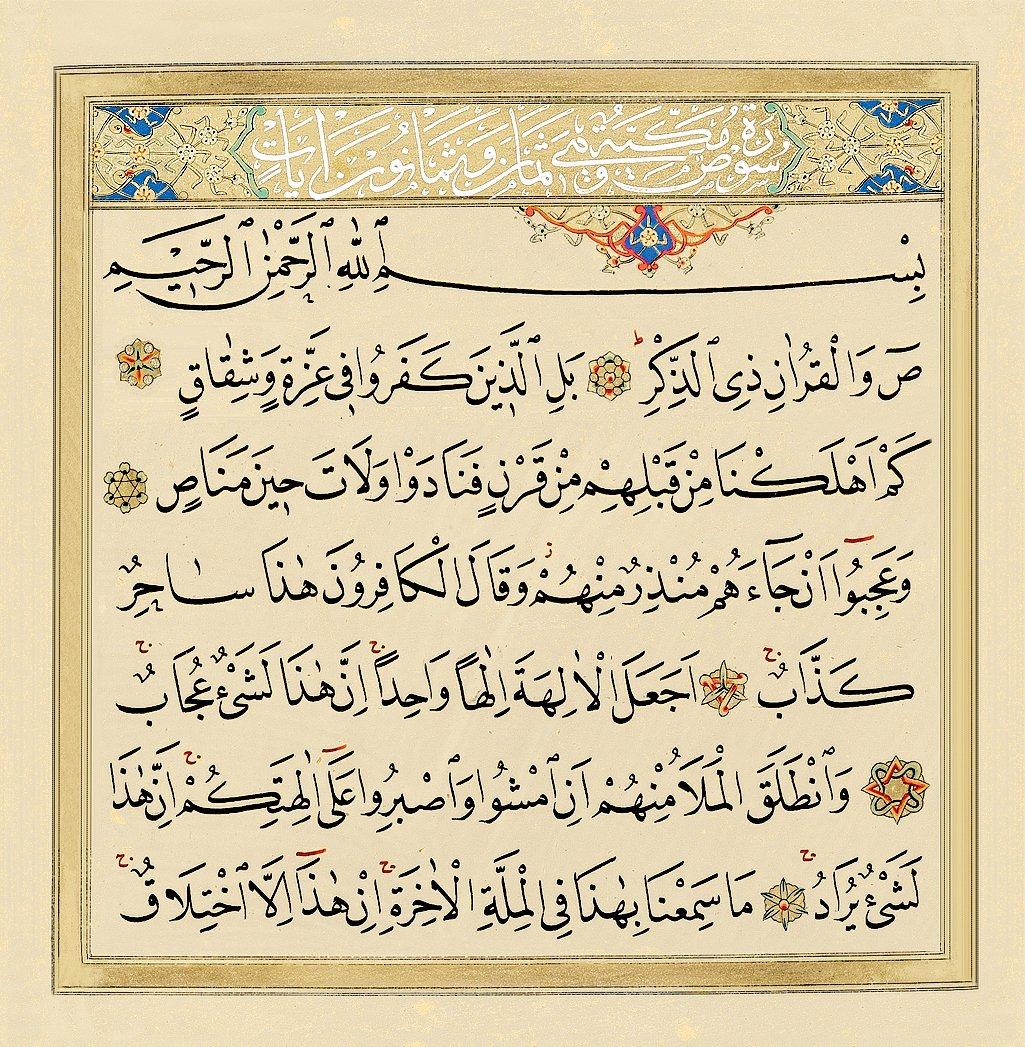 سورة ص مكية وهي ثمان وثمانون آيات
بِسْمِ ٱللّٰهِ ٱلرَّحْمٰنِ ٱلرَّحِيمِ
صٓ وَالْقُرْاٰنِ ذِى ٱلذِّكْرِ ۝ بَلِ ٱلَّذِينَ كَفَرُوا فِى عِزَّةٍ وَشِقَاقٍ ۝
كَمْ اَهْلَكْنَا مِنْ قَبْلِهِمْ مِنْ قَرْنٍ فَنَادَوْا وَلَاتَ حِينَ مَنَاصٍ ۝
وَعَجِبُٓوا اَنْ جَٓاءَهُمْ مُنْذِرٌ مِنْهُمْ وَقَالَ الْكَافِرُونَ هٰذَا سَاحِرٌ
كَذَّابٌ ۝ اَجَعَلَ الْاٰلِهَةَ اِلٰهًا وَاحِدًا اِنَّ هٰذَا لَشَىْءٌ عُجَابٌ
۝ وَٱنْطَلَقَ الْمَلَاُ مِنْهُمْ اَنِ ٱمْشُوا وَٱصْبِرُوا عَلٰٓى اٰلِهَتِكُمْ اِنَّ هٰذَا
لَشَىْءٌ يُرَادُ ۝ مَا سَمِعْنَا بِهٰذَا فِى الْمِلَّةِ الْاٰخِرَةِ اِنْ هٰذَٓا اِلَّا ٱخْتِلَاقٌ